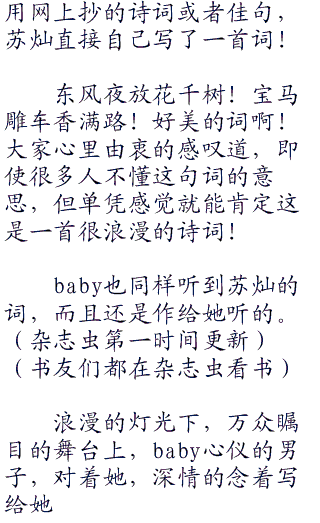 用网上抄的诗词或者佳句，
苏灿直接自己写了一首词！
东风夜放花千树！宝马
雕车香满路！好美的词啊！
大家心里由衷的感叹道，即
使很多人不懂这句词的意
思，但单凭感觉就能肯定这
是一首很浪漫的诗词！
baby也同样听到苏灿的
词，而且还是作给她听的。
（杂志虫第一时间更新）
（书友们都在杂志虫看书）
浪漫的灯光下，万众瞩
目的舞台上，baby心仪的男
子，对着她，深情的念着写
给她